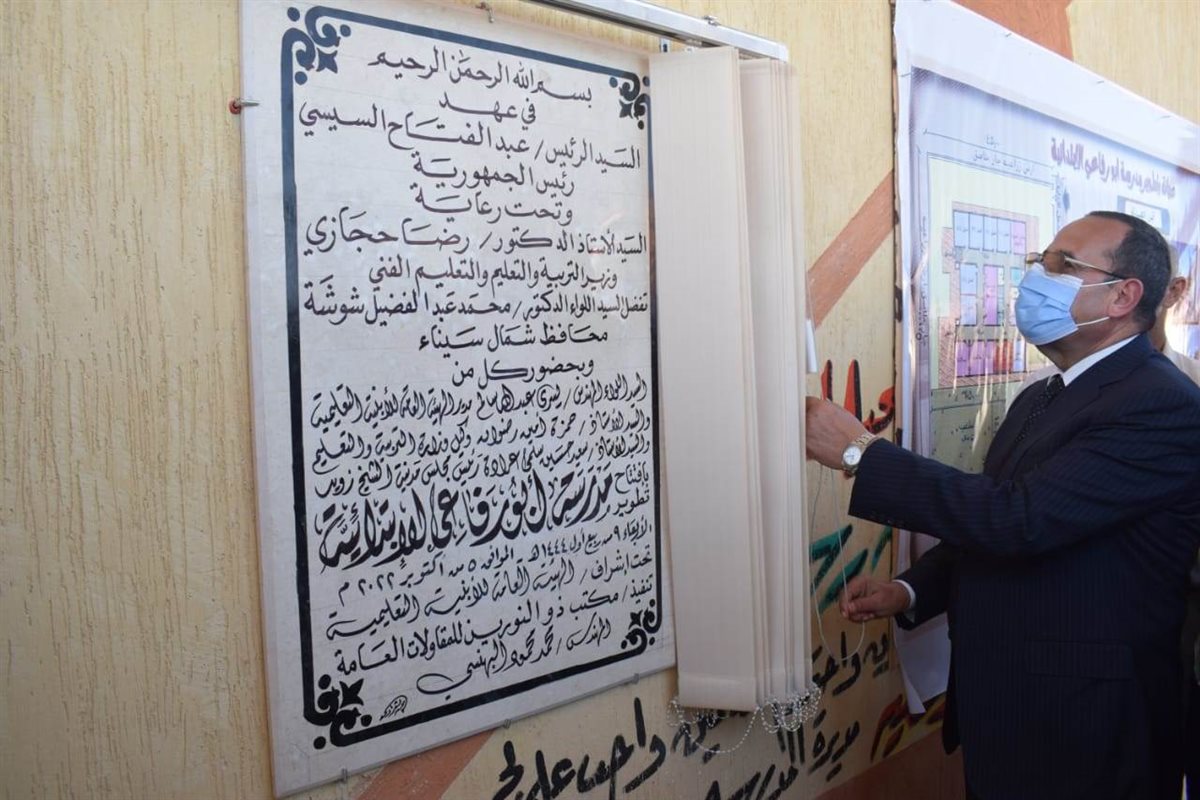 بسم الله الرحمن الرحيم
في عهد
السيد الرئيس / عبد الفتاح السيسي
رئيس الجمهورية
وتحت رعاية
السيد الأستاذ الدكتور / رضا حجازي
وزير التربية والتعليم والتعليم الفني
تفضل السيد اللواء الدكتور / محمد عبد الفضيل شوشة
محافظ شمال سيناء
وبحضور كل من
السيد اللواء المهندس / يسري عبد الله سالم مدير الهيئة العامة للأبنية التعليمية
والسيد الأستاذ / حمزة أمين رضوان وكيل وزارة التربية والتعليم
والسيد الأستاذ / سعد حسين سلمي عرادة رئيس مجلس مدينة الشيخ زويد
بإفتتاح
تطوير مدرسة أبو رفاعي الإبتدائية
الأربعاء ٩ من ربيع أول ١٤٤٤ هـ الموافق ٥ من أكتوبر ٢٠٢٢ م
تحت إشراف / الهيئة العامة للأبنية التعليمية
تنفيذ / مكتب ذو النورين للمقاولات العامة
المهندس / محمد محمود البهنسي
صيانة وتطوير مدرسة ابو رفاعي الابتدائية
مديرة